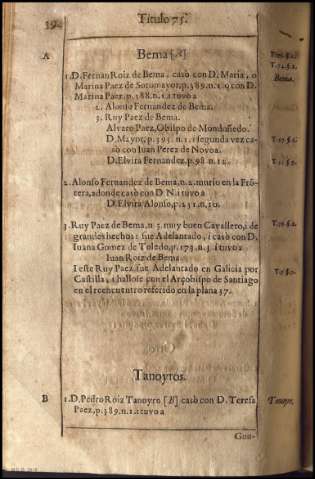 Titulo 75.
A
Bema [A]
1. D. Fernan Roiz de Bema, casò con D. Maria, o
Marina Paez de Sotomayor, p.389.n.1. o con D.
Marina Paez. p.388.n.1. tuvo a
2. Alonso Fernandez de Bema.
3. Ruy Paez de Bema.
Alvaro Paez, Obispo de Mondoñedo.
D. Mayor, p.395. n.1. segunda vez ca
sò con Iuan Perez de Novoa.
D. Elvira Fernandez, p.98 n.12.
Bema.
2. Alonso Fernandez de Bema, n.2. murio en la Frõ
tera, adonde casò con D N. i tuvo a
D. Elvira Alonso, p.431. n.30.
3. Ruy Paez de Bema, n 3. muy buen Cavallero, i de
grandes hechos: fue Adelantado, i casò con D.
Iuana Gomez de Toledo, p.173. n.3. i tuvo a
Iuan Roiz de Bema.
I este Ruy Paez, fue Adelantado en Galicia por
Castilla, i hallose con el Arçobispo de Santiago
en el rechencuentro referido en la plana 37.
Tanoyros.
B
1. D. Pedro Roiz Tanoyro [B] casò con D. Teresa
Paez, p.389. n.1. i tuvo a
Tanoyro.
Gon-